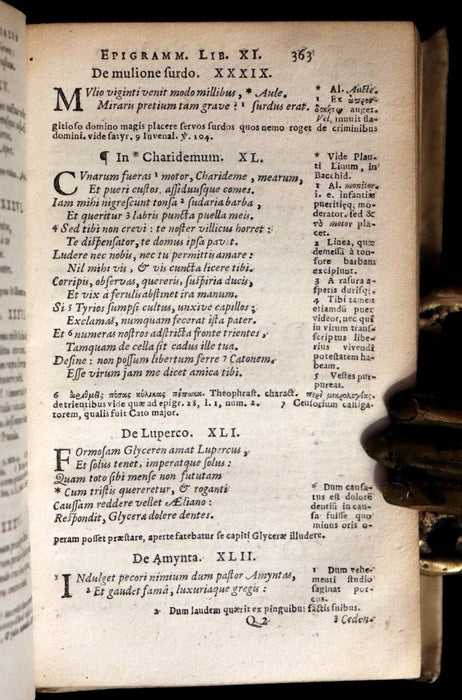 EPIGRAMM. LIB. XI. 363
De mulione surdo. XXXIX.
MVlio viginti venit modo millibus, * Aule.
Miraru pretium tam grave? 1 surdus erat.
* Al. Aucte.
1 Ex
auget.
Vel, innuit fla-
gitioso domino magis placere servos surdos quos nemo roget de criminibus
domini. vide satyr. 9 Iuvenal. ỳ. 104.
¶ In * Charidemum. XL.
CVnarum fueras 1 motor, Charideme, mearum,
Et pueri custos, assiduusque comes.
Iam mihi nigrescunt tonsa 2 sudaria barba,
Et queritur 3 labris puncta puella meis.
4 Sed tibi non crevi: te noster villicus horret:
Te dispensator, te domus ipsa pavet.
Ludere nec nobis, nec tu permittis amare:
Nil mihi vis, & vis cuncta licere tibi.
Corripis, observas, quereris, suspiria ducis,
Et vix à ferulis abstinet ira manum.
Si 5 Tyrios sumpsi cultus, unxive capillos;
Exclamas, numquam fecerat ista pater.
Et 6 numeras nostros adstricta fronte trientes,
Tamquam de cella sit cadus ille tua.
Desine: non possum libertum ferre 7 Catonem,
Esse virum jam me dicet amica tibi.
* Vide Plau-
ti Linum, in
Bacchid.
1 Al. monitor.
i. e. infantiæ
pueritięq; mo-
derator. sed &
τὸ motor pla-
cet.
2 Linea, quæ
demessā à ton-
sore barbam
excipiunt.
3 A rasura a-
speris
4 Tibi tamen
etiamdū puer
videor, nec qui
in virum trans-
scriptus libe-
rius vivendi
potestatem ha-
beam.
5 Vestes pur-
pureas.
6 ἀριθμεῖς πόσας κύλικας πέπωκε. Theophrast. charact. περὶ μικρολογίας.
de trientibus vide quæ ad epigr. 28, l. 1, num. 2. 7 Censorium castiga-
torem, qualis fuit Cato major.
De Luperco. XLI.
FOrmosam Glyceren amat Lupercus,
Et solus tenet, imperatque solus:
Quam toto sibi mense non fututam
* Cum tristis quereretur, & roganti
Caussam reddere vellet Æliano:
Respondit, Glyceræ dolere dentes.
* Dum causa-
tus est dolorē
dentiū in cau-
sa fuisse quo
minus oris o-
peram posset præstare, aperte fatebatur se capiti Glyceræ illudere.
De Amynta. XLII.
1 INdulget pecori nimium dum pastor Amyntas,
2 Et gaudet famâ, luxuriaque gregis:
1 Dum vehe-
menti studio
saginat por-
cos.
2 Dum laudem quærit ex pinguibus factis suibus.
Q 2 3 Ceden-